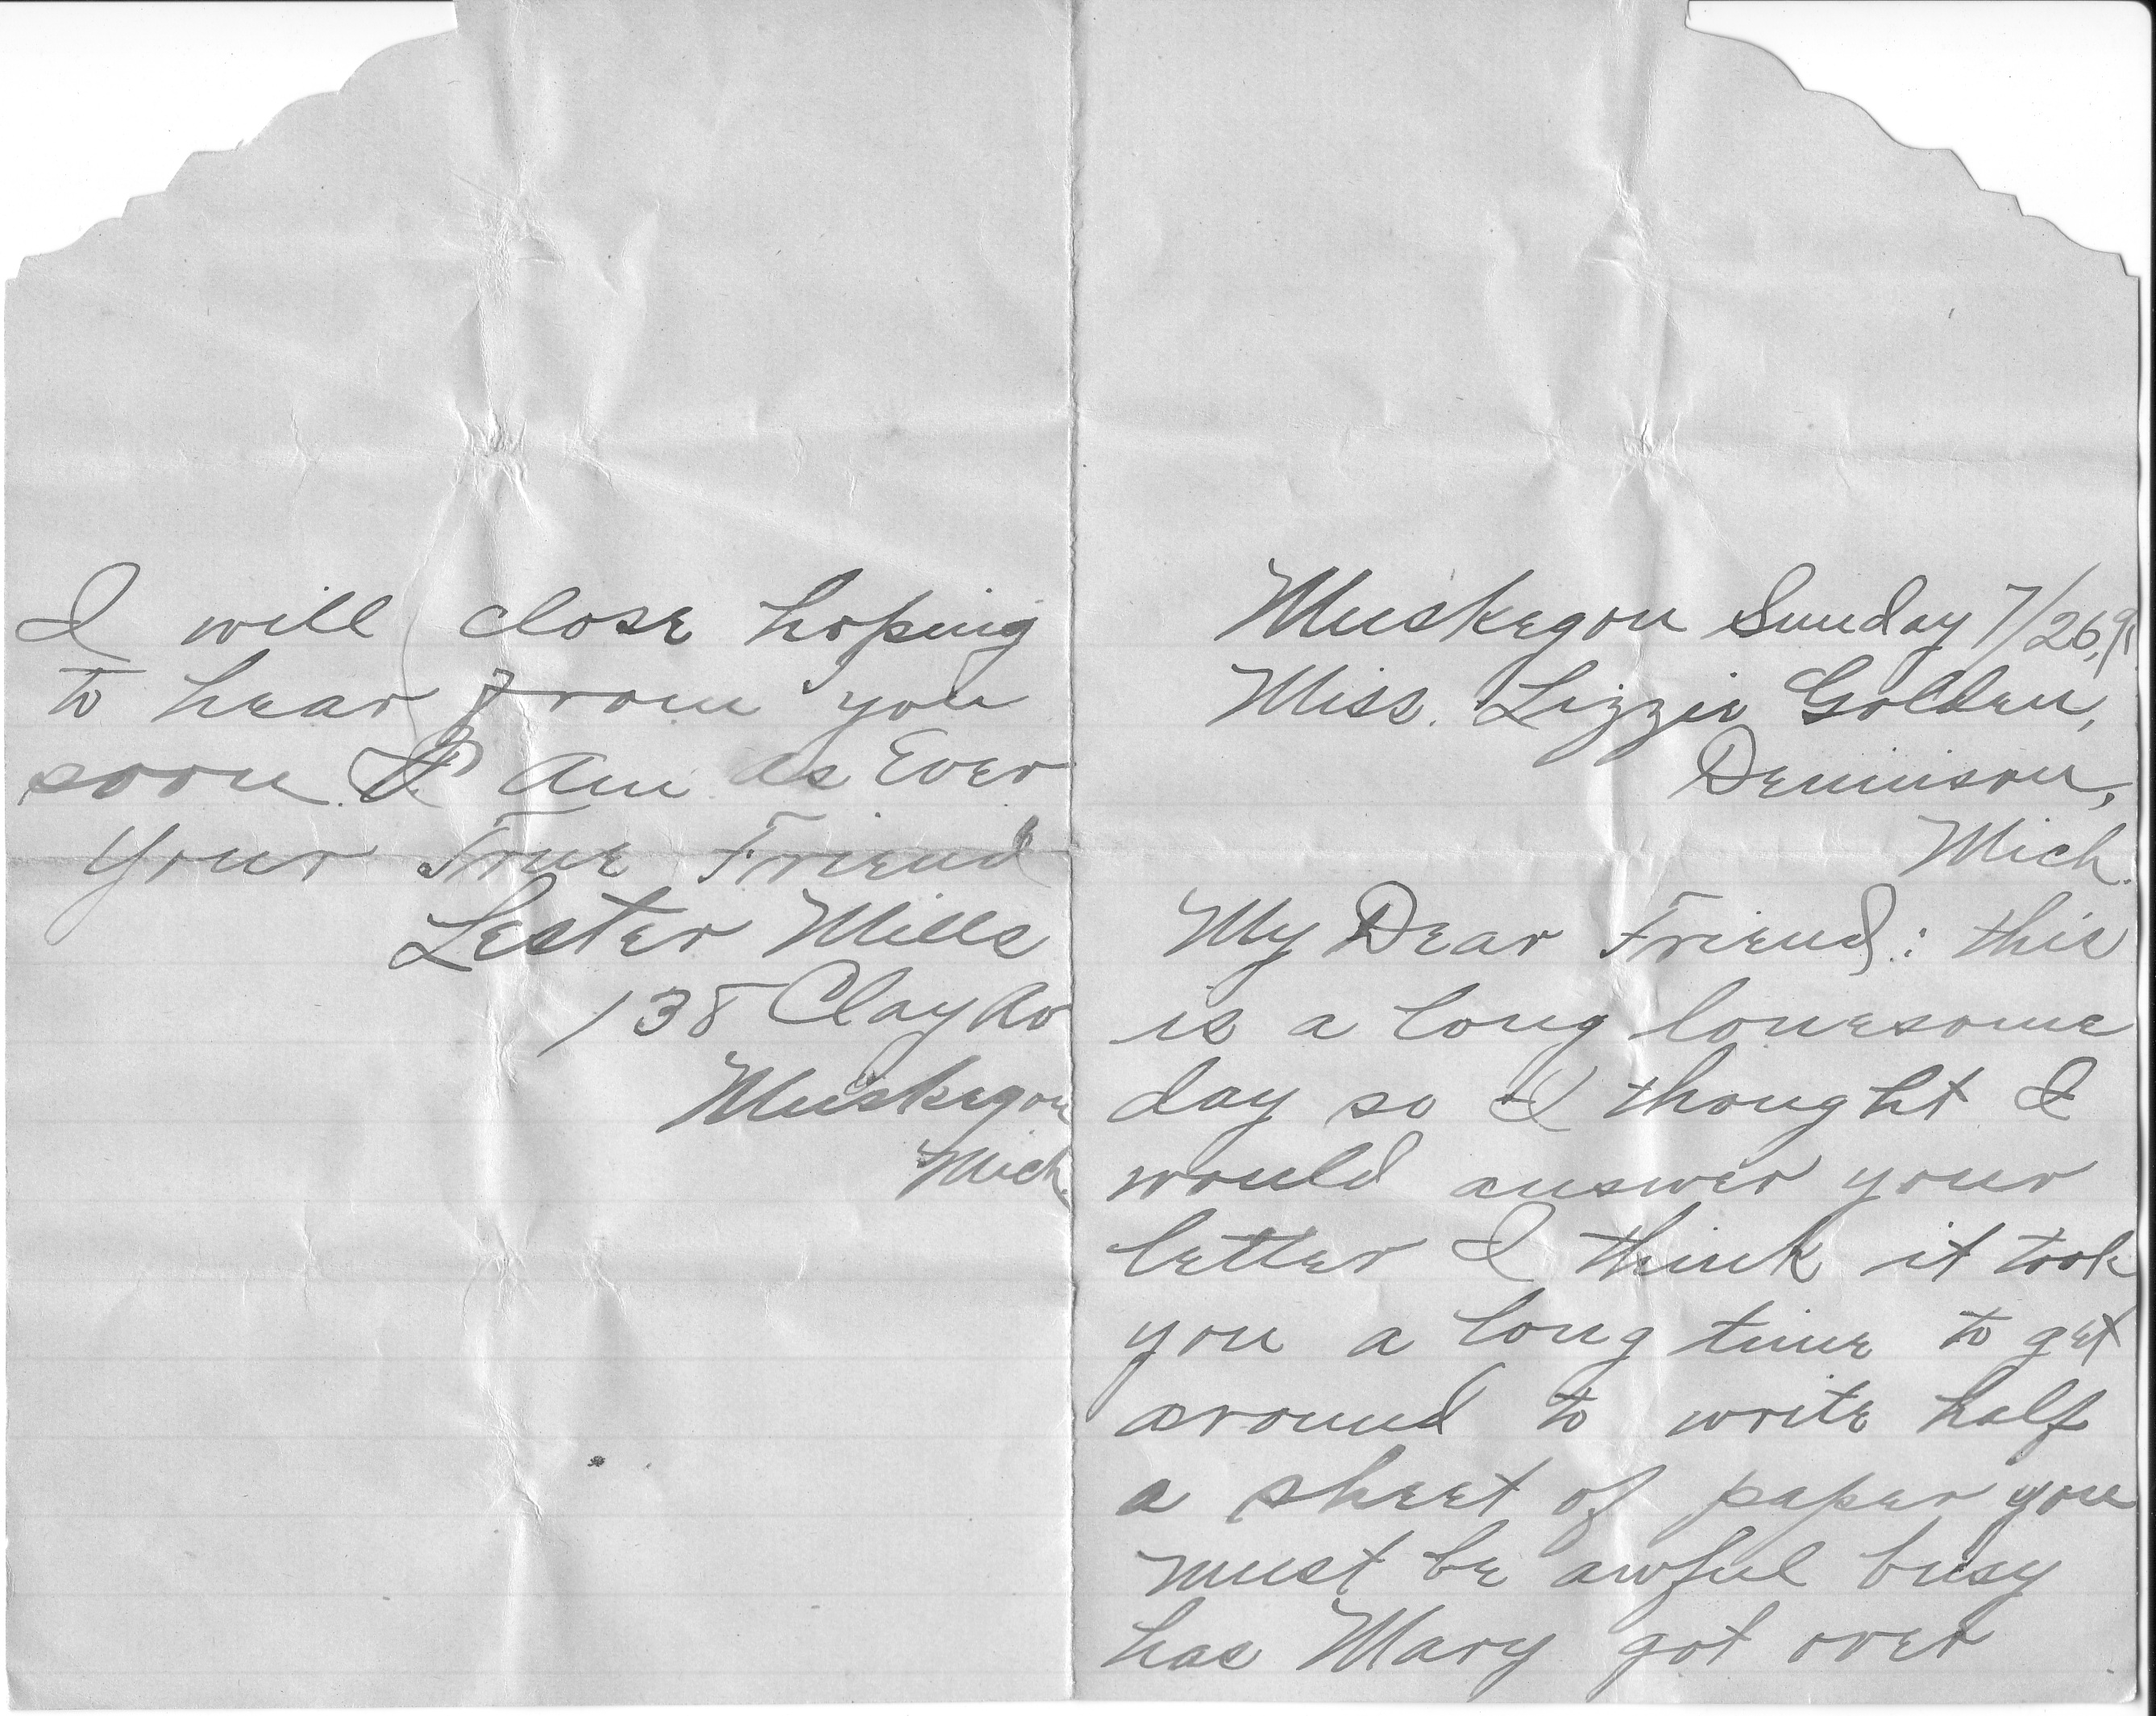 Muskegon Sunday 7/26,91
Miss. Lizzie Golden,
Dennison,
Mich.
My Dear Friend: this
is a long lonesome
day so I thought I
would answer your
letter I think it took
you a long time to get
around to write half
a sheet of paper you
must be awful busy
has Mary got over
I will close hoping
to hear from you
soon I am as Ever
your True Friend
Lester Mills
138 Clay Av
Muskegon
Mich.